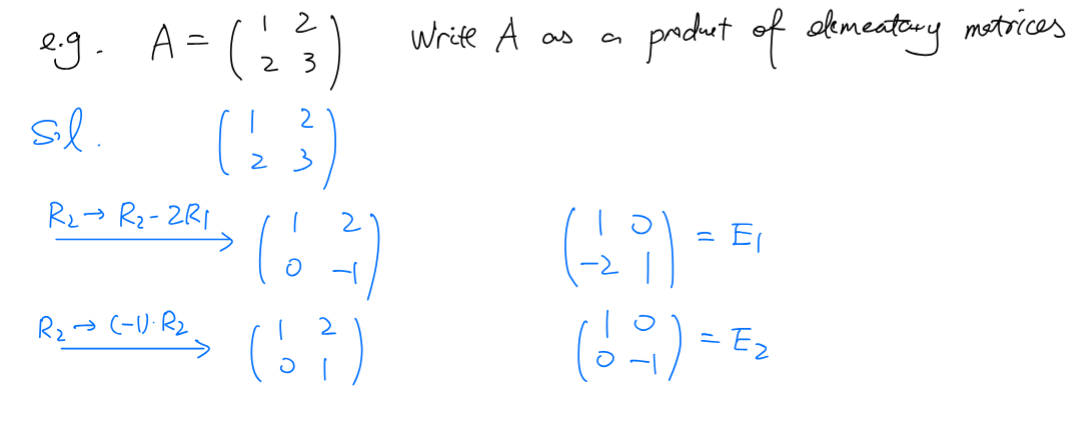 e.g. A = ( 1 2 ; 2 3 ) Write A as a product of elementary matrices
Sol. ( 1 2 ; 2 3 )
R₂ → R₂ - 2R₁ ( 1 2 ; 0 -1 ) ( 1 0 ; -2 1 ) = E₁
R₂ → (-1)·R₂ ( 1 2 ; 0 1 ) ( 1 0 ; 0 -1 ) = E₂